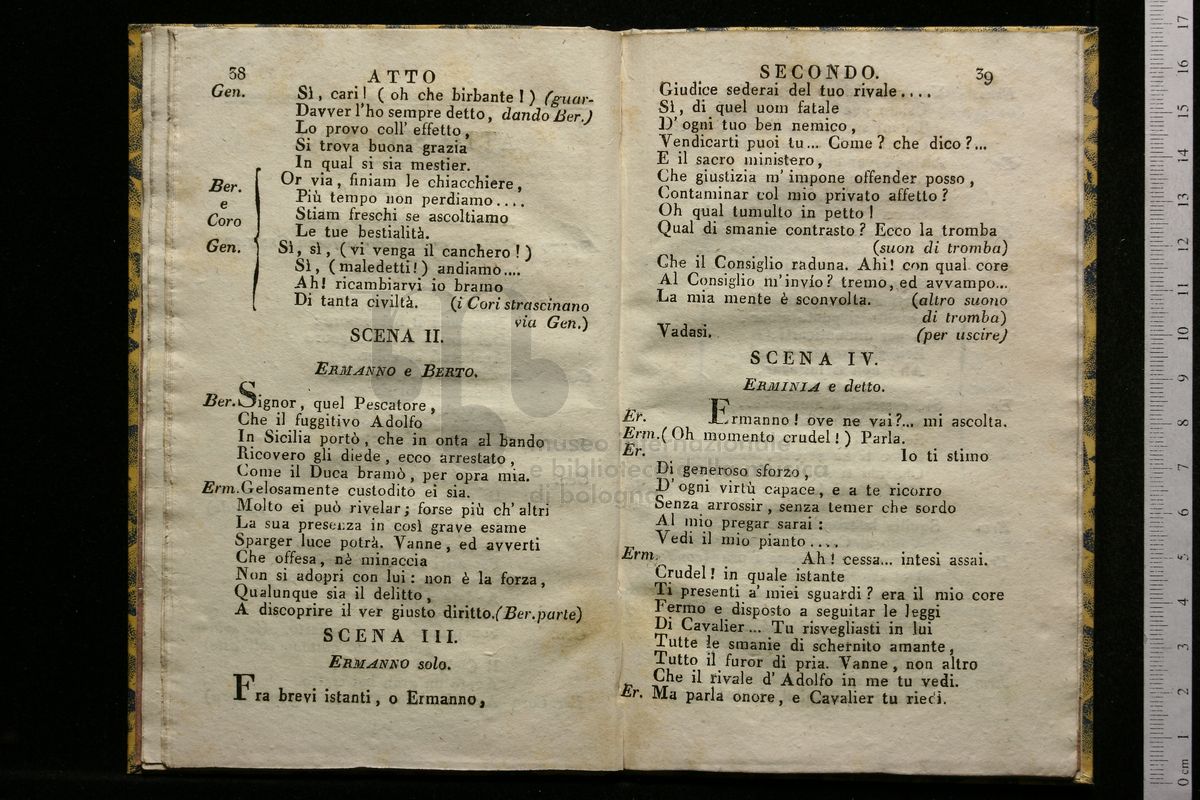 38
ATTO
Gen. Sì, cari! (oh che birbante!) (guar-
Davver l'ho sempre detto, dando Ber.)
Lo provo coll' effetto,
Si trova buona grazia
In qual si sia mestier.
Ber. e Coro Or via, finiam le chiacchiere,
Più tempo non perdiamo....
Stiam freschi se ascoltiamo
Le tue bestialità.
Gen. Sì, sì, (vi venga il canchero!)
Sì, (maledetti!) andiamo....
Ah! ricambiarvi io bramo
Di tanta civiltà. (i Cori strascinano
via Gen.)
SCENA II.
ERMANNO e BERTO.
Ber. Signor, quel Pescatore,
Che il fuggitivo Adolfo
In Sicilia portò, che in onta al bando
Ricovero gli diede, ecco arrestato,
Come il Duca bramò, per opra mia.
Erm. Gelosamente custodito ei sia.
Molto ei può rivelar; forse più ch' altri
La sua presenza in così grave esame
Sparger luce potrà. Vanne, ed avverti
Che offesa, nè minaccia
Non si adopri con lui: non è la forza,
Qualunque sia il delitto,
A discoprire il ver giusto diritto. (Ber. parte)
SCENA III.
ERMANNO solo.
Fra brevi istanti, o Ermanno,
SECONDO.
39
Giudice sederai del tuo rivale....
Sì, di quel uom fatale
D' ogni tuo ben nemico,
Vendicarti puoi tu... Come? che dico?...
E il sacro ministero,
Che giustizia m' impone offender posso,
Contaminar col mio privato affetto?
Oh qual tumulto in petto!
Qual di smanie contrasto? Ecco la tromba
(suon di tromba)
Che il Consiglio raduna. Ahi! con qual core
Al Consiglio m'invio? tremo, ed avvampo...
La mia mente è sconvolta. (altro suono
di tromba)
Vadasi. (per uscire)
SCENA IV.
ERMINIA e detto.
Er. Ermanno! ove ne vai?... mi ascolta.
Erm. (Oh momento crudel!) Parla.
Er. Io ti stimo
Di generoso sforzo,
D' ogni virtù capace, e a te ricorro
Senza arrossir, senza temer che sordo
Al mio pregar sarai:
Vedi il mio pianto....
Erm. Ah! cessa... intesi assai.
Crudel! in quale istante
Ti presenti a' miei sguardi? era il mio core
Fermo e disposto a seguitar le leggi
Di Cavalier... Tu risvegliasti in lui
Tutte le smanie di schernito amante,
Tutto il furor di pria. Vanne, non altro
Che il rivale d' Adolfo in me tu vedi.
Er. Ma parla onore, e Cavalier tu riedi.
museo internazionale
e biblioteca della musica
di bologna
0 cm 1 2 3 4 5 6 7 8 9 10 11 12 13 14 15 16 17